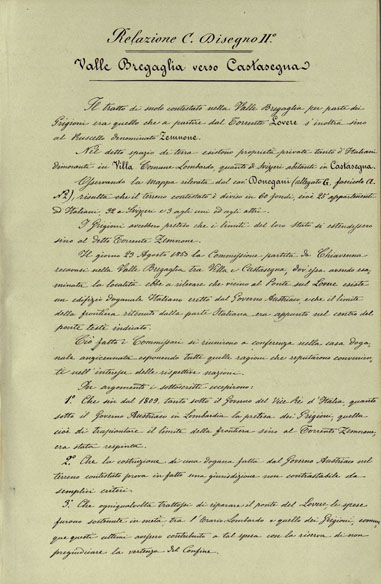 Relazione C. Disegno II.º
Valle Bregaglia verso Castasegna
Il tratto di suolo contestato nella Valle Bregaglia, per parte dei
Grigioni era quello che a partire dal Torrente Lovere s'inoltra sino
al Ruscello denominato Zemnone.
Nel detto spazio di terra esistono proprietà private tanto d'Italiani
dimoranti in Villa Comune Lombardo, quanto di Svizzeri abitanti in Castasegna.
Osservando la mappa rilevata dal cons Donegani (allegato G, fascicolo A.
N.2), risulta che il terreno contestato è diviso in 60 fondi, cioè 25 appartenenti
ad Italiani, 32 a Svizzeri e 3 agli uni ed agli altri.
I Grigioni avrebbero preteso che i limiti del loro Stato si estendessero
sino al detto Torrente Zemnone.
Il giorno 23 Agosto 1863 la Commissione partita da Chiavenna
recavasi nella Valle Bregaglia tra Villa e Castasegna, dov'essa avendo esa-
minata la località ebbe a rilevare che vicino al Ponte sul Lovere esiste
un edifizio doganale Italiano eretto dal Governo Austriaco e che il limite
della frontiera ritenuto dalla parte Italiana era appunto nel centro del
ponte testè indicato.
Ciò fatto i Commissari si riunirono a conferenza nella casa doga-
nale anzicennata esponendo tutte quelle ragioni che reputarono convenien-
ti nell'interesse delle rispettive nazioni.
Per argomenti i sottoscritti esposero:
1.º Che sin dal 1809, tanto sotto il Governo del Vice Rè d'Italia, quanto
sotto il Governo Austriaco in Lombardia la pretesa dei Grigioni, quella
cioè di traspiantare il limite della frontiera sino al Torrente Zemnone,
era stata respinta.
2.º Che la costruzione di una dogana fatta dal Governo Austriaco nel
terreno contestato prova in fatto una giurisdizione non contrastabile da
semplici criteri.
3.º Che ogniqualvolta trattossi di riparare il ponte del Lovere, le spese
furono sostenute in metà tra l'Erario Lombardo e quello dei Grigioni, comun-
que questi ultimi avessero contribuito a tal spesa con la riserva di non
pregiudicare la vertenza del Confine.